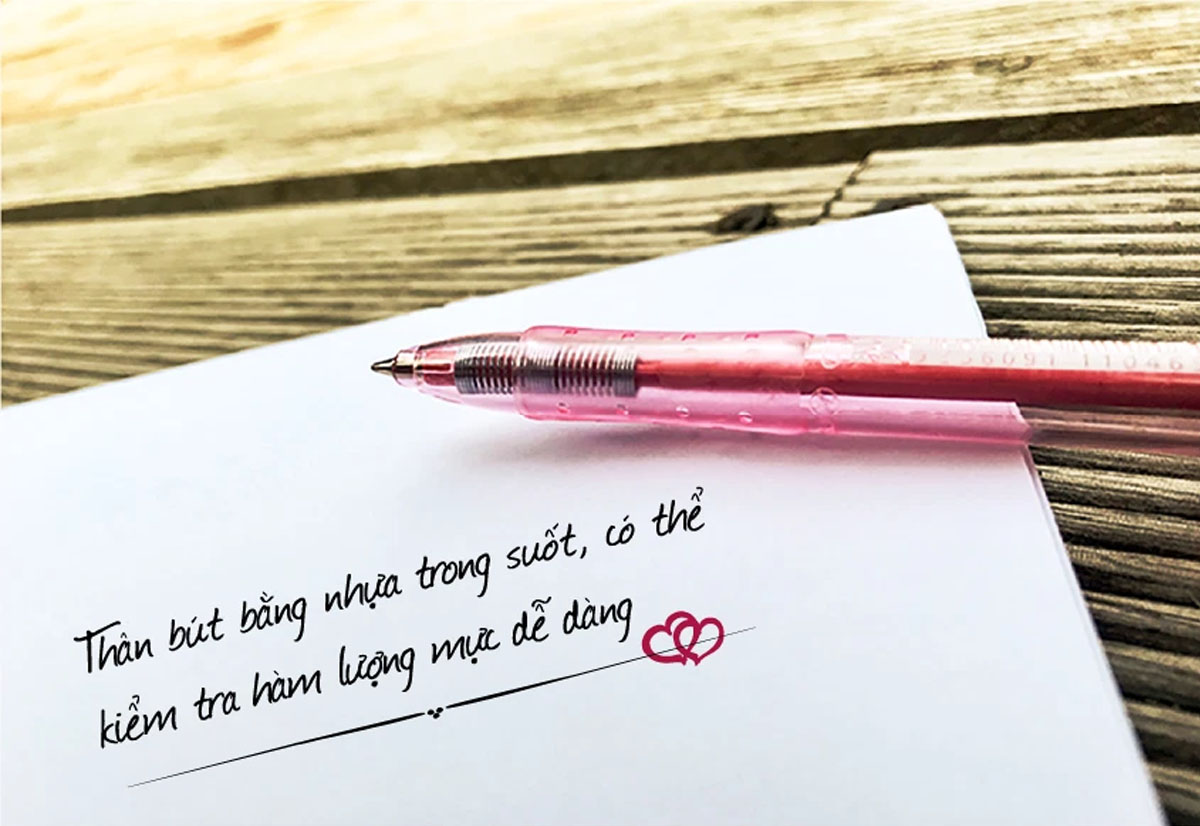 Thân bút bằng nhựa trong suốt, có thể
kiểm tra hàm lượng mực dễ dàng